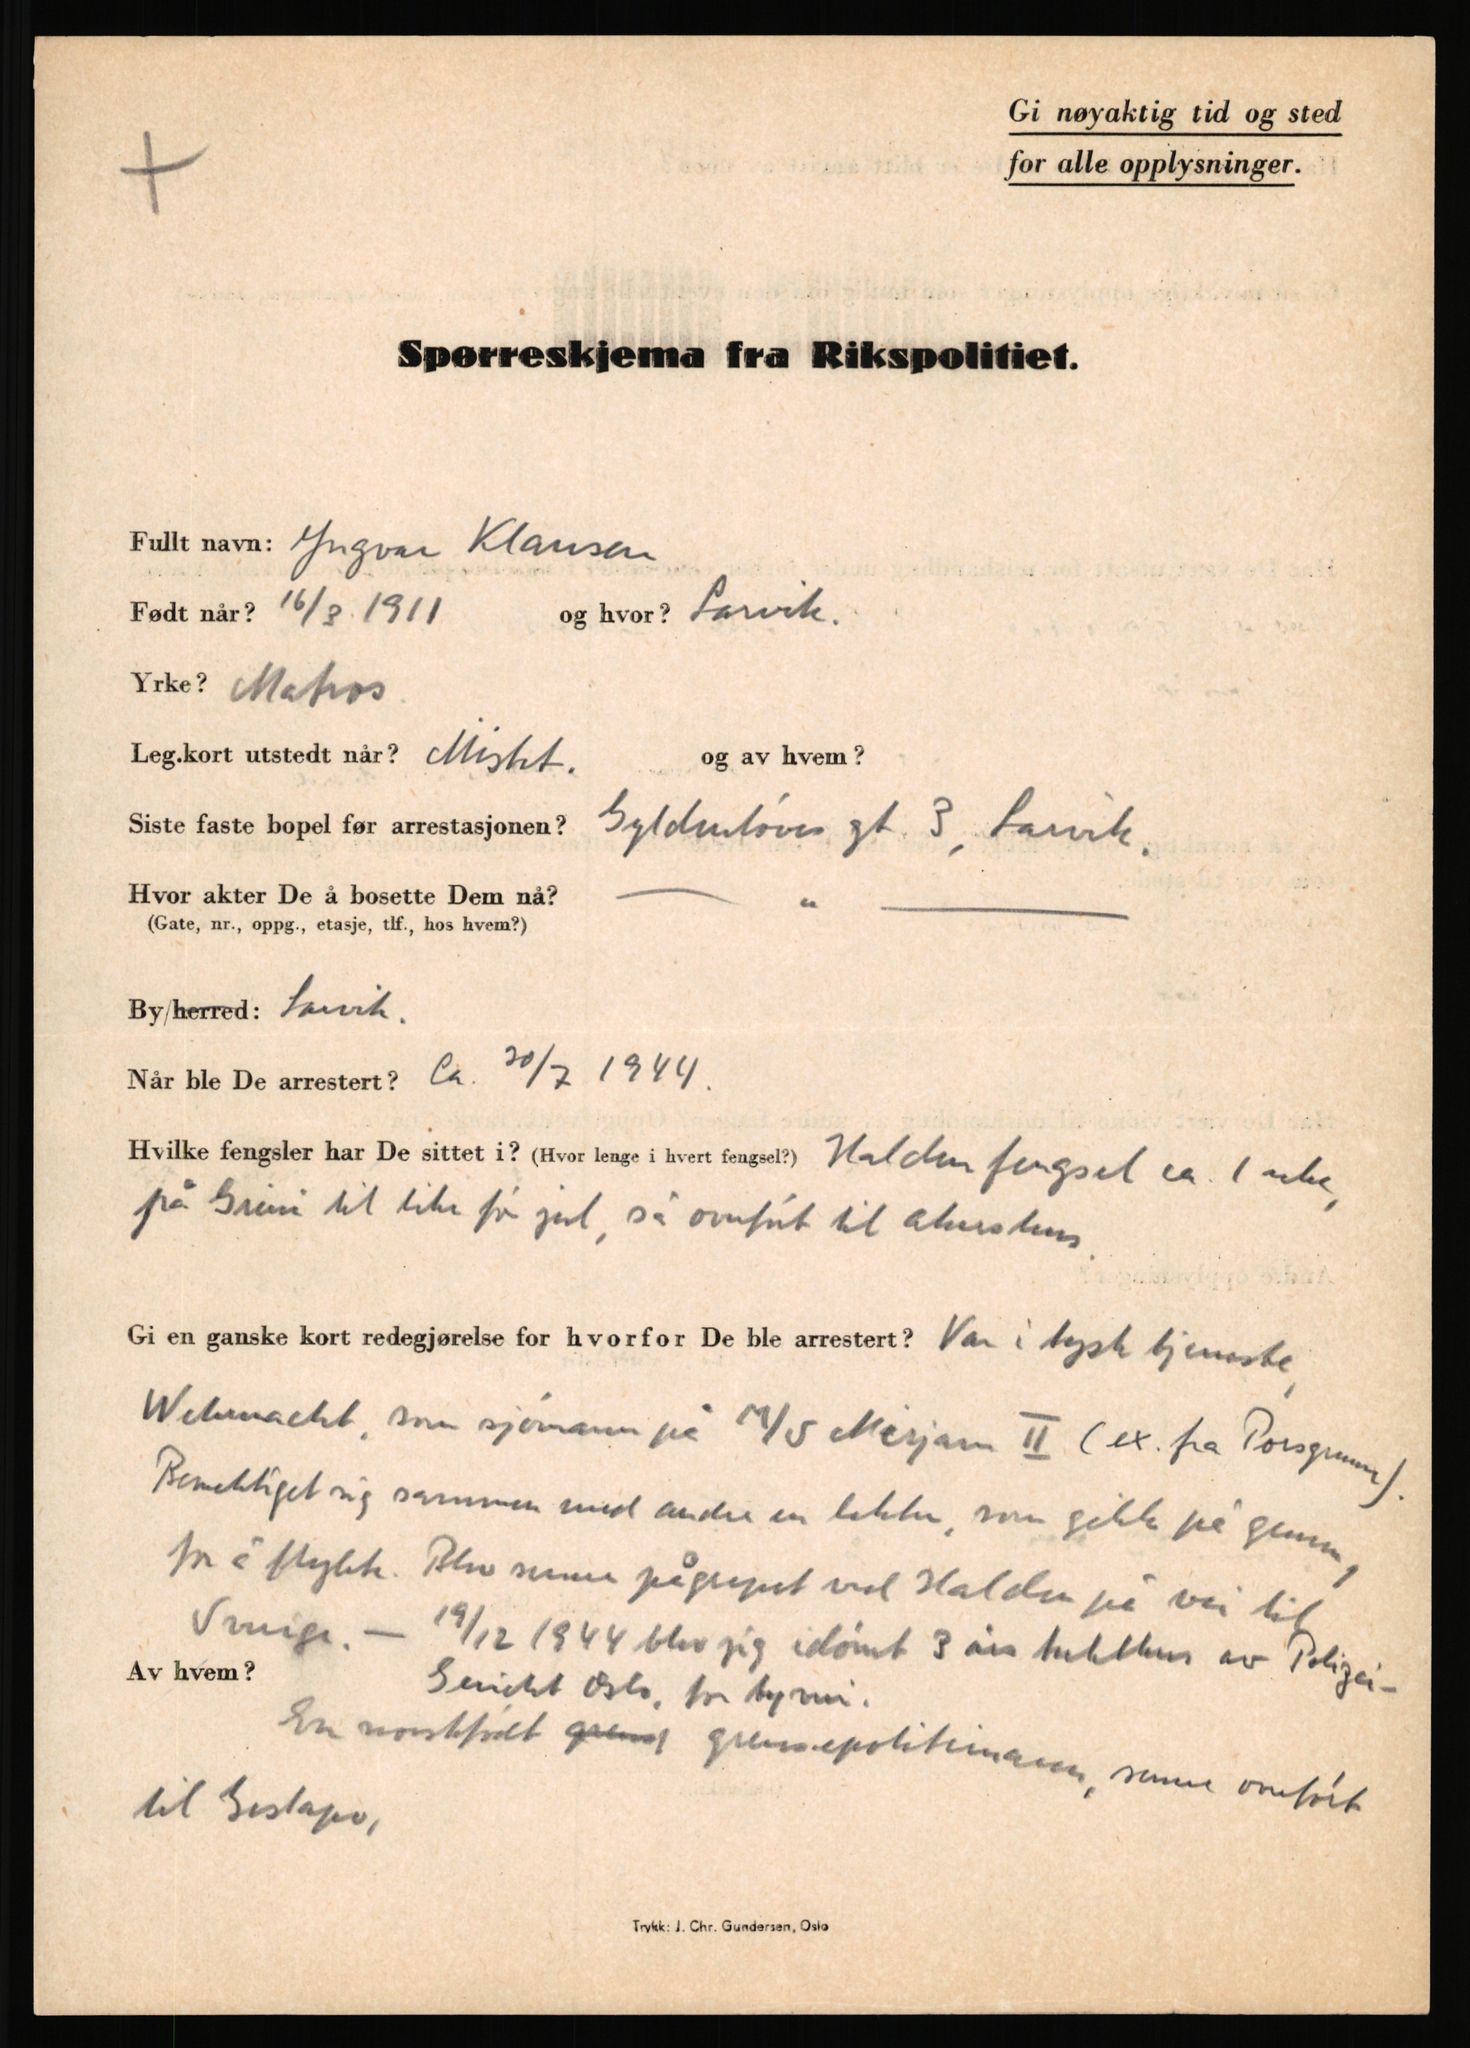 Gi nøyaktig tid og sted
for alle opplysninger.
Spørreskjema fra Rikspolitiet.
Fullt navn: Yngvar Klausen
Født når? 16/3 1911 og hvor? Larvik.
Yrke? Matros
Leg.kort utstedt når? Mistet. og av hvem?
Siste faste bopel før arrestasjonen? Gyldenløves gt. 3, Larvik.
Hvor akter De å bosette Dem nå? — " —
(Gate, nr., oppg., etasje, tlf., hos hvem?)
By/herred: Larvik.
Når ble De arrestert? Ca. 20/7 1944.
Hvilke fengsler har De sittet i? (Hvor lenge i hvert fengsel?) Halden fengsel ca. 1 uke,
på Grini til like før jul, så overført til Akershus.
Gi en ganske kort redegjørelse for hvorfor De ble arrestert? Var i tysk tjeneste,
Wehrmacht, som sjømann på M/S Mirjam II (ex. fra Porsgrunn).
Bemektiget sig sammen med andre en lekter, som gikk på grunn,
for å flykte. Blev senere pågrepet ved Halden på vei til
Sverige. — 19/12 1944 blev jeg idømt 3 års tukthus av Polizei-
Av hvem? Gericht Oslo, for tyveri.
En norskfødt grens grensepolitimann, senere overført
til Gestapo,
Trykk: J. Chr. Gundersen, Oslo